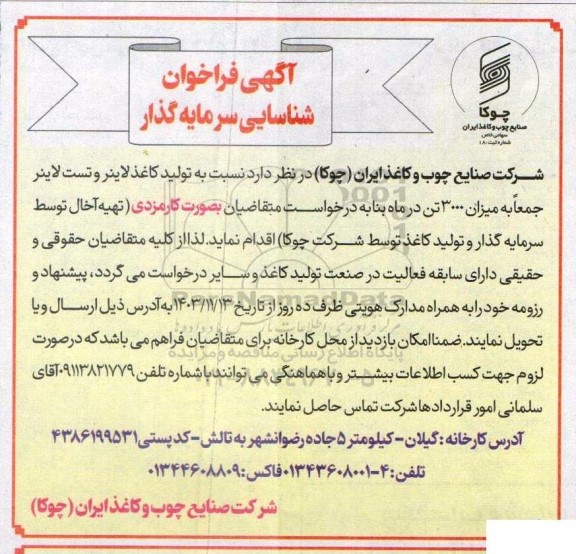 آگهی فراخوان
شناسایی سرمایه گذار
چوکا
صنایع چوب و کاغذ ایران
سهامی خاص
شماره ثبت: ۱۸۰
شرکت صنایع چوب و کاغذ ایران (چوکا) در نظر دارد نسبت به تولید کاغذ لاینر و تست لاینر
جمعاً به میزان ۳۰۰۰ تن در ماه بنا به درخواست متقاضیان بصورت کارمزدی (تهیه آخال توسط
سرمایه گذار و تولید کاغذ توسط شرکت چوکا) اقدام نماید. لذا از کلیه متقاضیان حقوقی و
حقیقی دارای سابقه فعالیت در صنعت تولید کاغذ و سایر درخواست می گردد، پیشنهاد و
رزومه خود را به همراه مدارک هویتی ظرف ده روز از تاریخ ۱۴۰۳/۱۱/۱۳ به آدرس ذیل ارسال و یا
تحویل نمایند. ضمنا امکان بازدید از محل کارخانه برای متقاضیان فراهم می باشد که درصورت
لزوم جهت کسب اطلاعات بیشتر و یا هماهنگی می توانند با شماره تلفن ۰۹۱۱۳۸۲۱۷۷۹ آقای
سلمانی امور قراردادها شرکت تماس حاصل نمایند.
آدرس کارخانه: گیلان - کیلومتر ۵ جاده رضوانشهر به تالش - کدپستی ۴۳۸۶۱۹۹۵۳۱
تلفن: ۴-۰۱۳۴۳۶۰۸۰۰۱ فاکس: ۰۱۳۴۴۶۰۸۸۰۹
شرکت صنایع چوب و کاغذ ایران (چوکا)